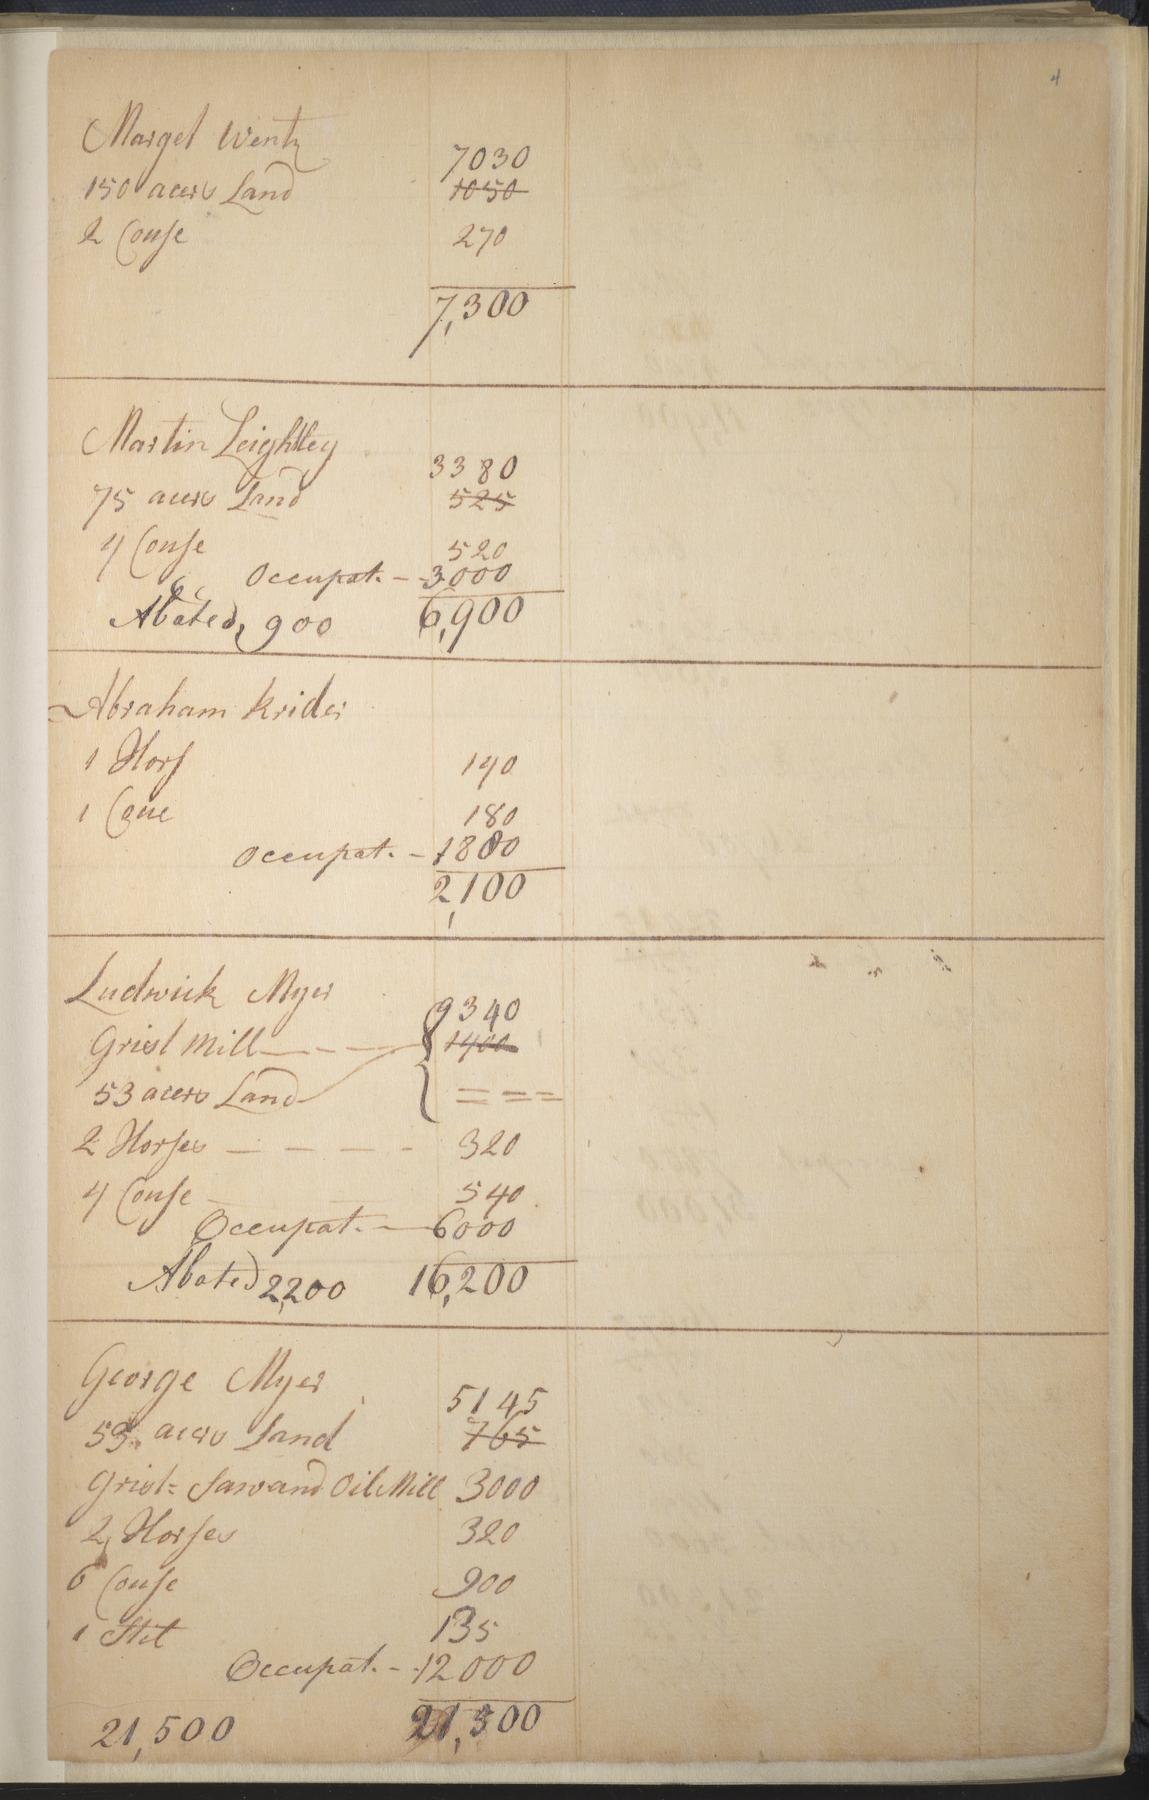 4
Margel Wentz
7030
150 acers Land 1050
2 Couse 270
7,300
Martin Leightley
3380
75 acers Land 525
4 Couse 520
Occupat. - 3000
Abated 900 6,900
Abraham Krider
1 Hors 140
1 Coue 180
Occupat. - 1800
2,100
Ludwick Myer
9340
Grist Mill 1400
53 acers Land
2 Horses 320
4 Couse 540
Occupat. 6000
Abated 2,200 16,200
George Myer
5145
53 acers Land 765
Grist= Saw and Oil Mill 3000
2 Horses 320
6 Couse 900
1 Stil 135
Occupat. - 12000
21,500 21,500